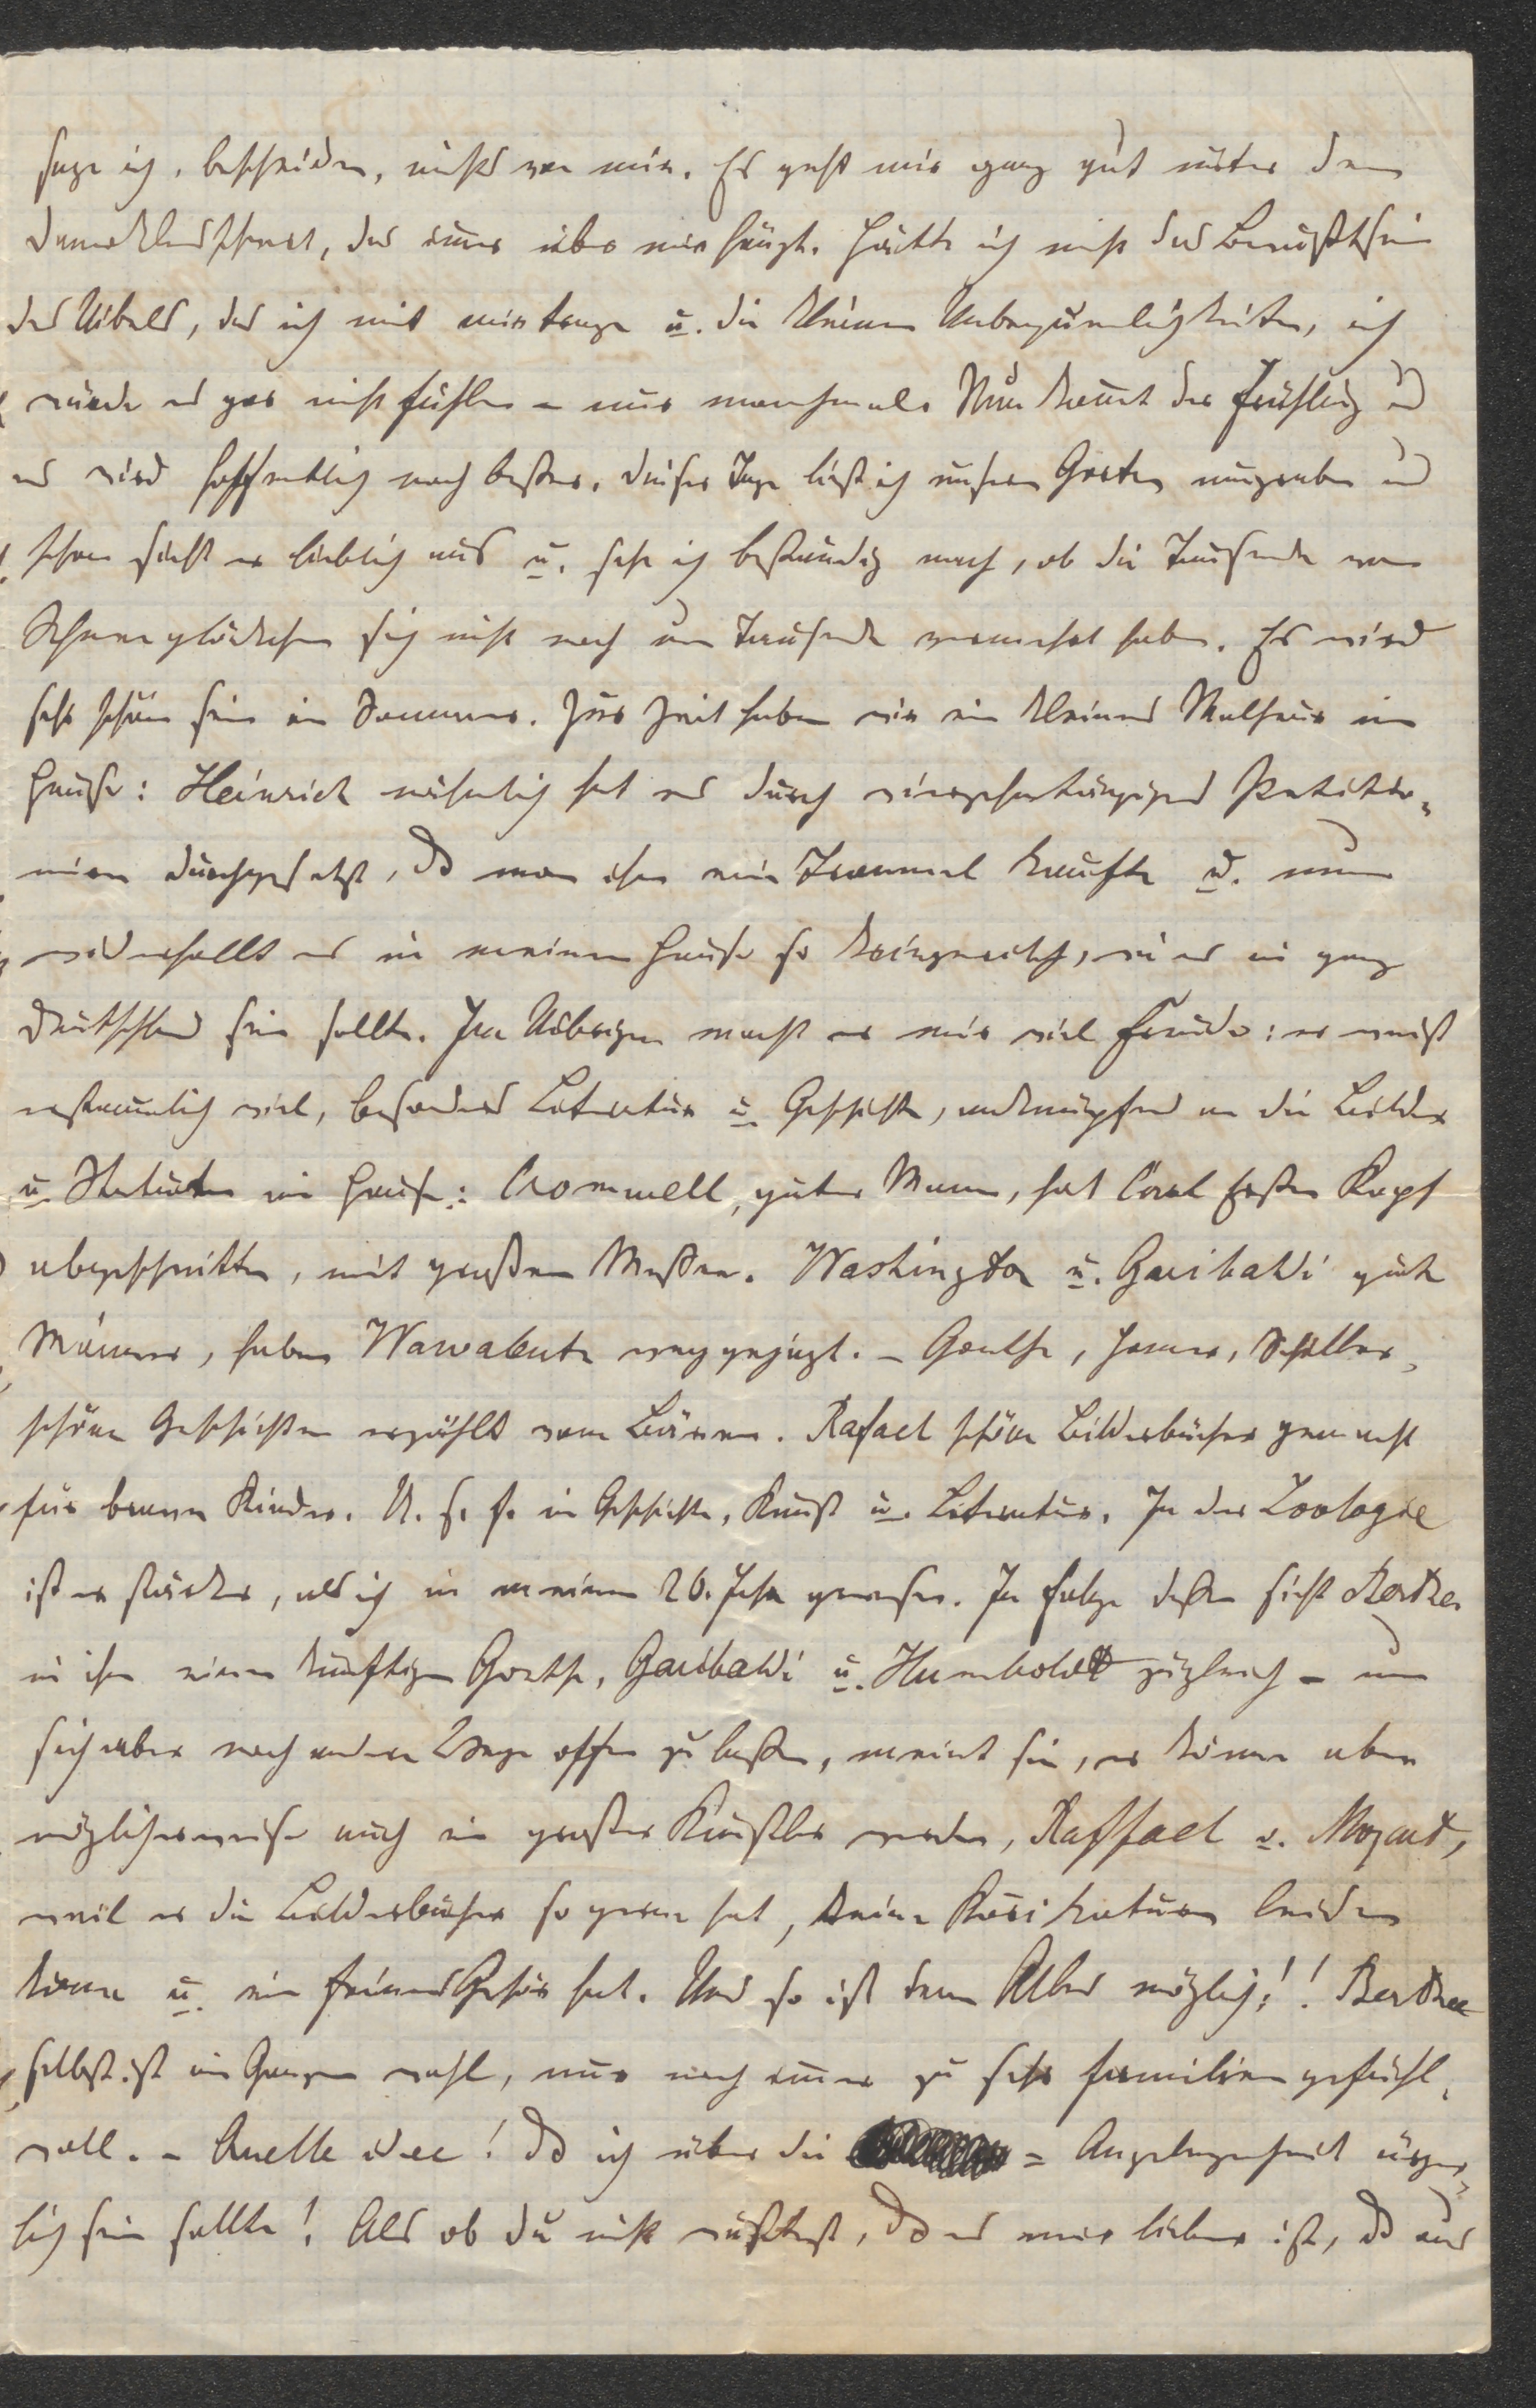 sage ich, bescheiden, nichts von mir. Es geht mir ganz gut unter dem
Damoklesschwert, das immer über mir hängt. Hätte ich nicht das Bewußtsein
des Uibels, das ich mit mir trage u. die kleinen Unbequemlichkeiten, ich
würde es gar nicht fühlen – nur manchmal. Nun kommt der Frühling und
es wird hoffentlich noch besser. Dieser Tage ließ ich unseren Garten umgraben und
schon sieht er lieblich aus u. sehe ich beständig nach, ob die Tausende von
Schneeglöckchen sich nicht noch um Tausende vermehrt haben. Es wird
sehr schön sein im Sommer. Zur Zeit haben wir ein kleines Malheur im
Hause: Heinrich nämlich hat es durch vierzehntägiges Petitio-
niren durchgesetzt, daß man ihm eine Trommel kaufte u. nun
widerhallt es in meinem Hause so kriegerisch, wie es in ganz
Deutschland sein sollte. Im Uibrigen macht er mir viel Freude: er weiß
erstaunlich viel, besonders Literatur u. Geschichte, anknüpfend an die Bilder
u. Statuten im Hause: Cromwell, guter Mann, hat Carl Ersten Kopf
abgeschnitten, mit großem Messer. Washington u. Garibaldi gute
Männer, haben Wawaleute weggejagt. – Goethe, Homer, Schiller,
schöne Geschichten erzählt vom Bären. Rafael schöne Bilderbücher gemacht
für brave Kinder. U. s. f. in Geschichte, Kunst u. Literatur. In der Zoologie
ist er stärker, als ich in meinem 20. Jahr gewesen. In Folge dessen sieht Bertha
in ihm einen künftigen Goethe, Garibaldi u. Humboldt zugleich – um
sich aber noch andere Wege offen zu lassen, meint sie, er könne aber
möglicherweise auch ein großer Künstler werden, Raffael u. Mozart,
weil er die Bilderbücher so gerne hat, keine Karikaturen leiden
könne u. ein feines Gehör hat. Und so ist denn Alles möglich!! Bertha
selbst ist im Ganzen wohl, nur noch immer zu sehr familiengefühl-
voll. – Quelle idee! Daß ich über die = Angelegenheit ärger-
lich sein sollte! Als ob du nicht wüßtest, daß es mir lieber ist, daß aus